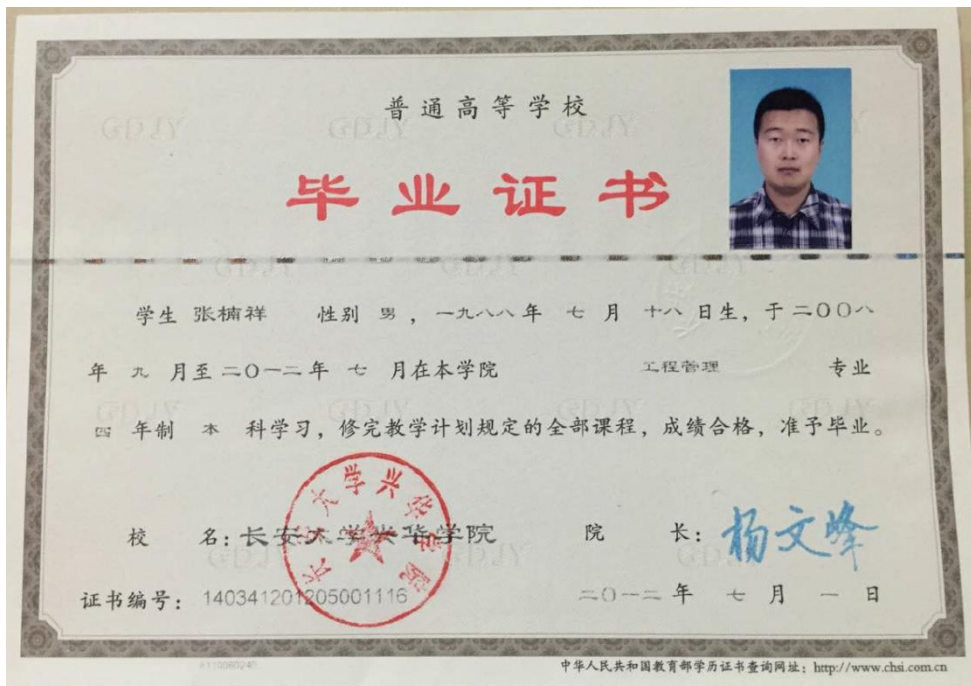 普通高等学校
毕业证书
学生 张楠祥 性别 男 ，一九八八年 七 月 十八 日生，于二〇〇八
年 九 月至二〇一二年 七 月在本学院 工程管理 专业
四 年制 本 科学习，修完教学计划规定的全部课程，成绩合格，准予毕业。
校 名：长安大学兴华学院 院 长：杨文峰
长安大学兴华学院
证书编号：140341201205001116 二〇一二年 七 月 一 日
中华人民共和国教育部学历证书查询网址：http://www.chsi.com.cn
GDJY